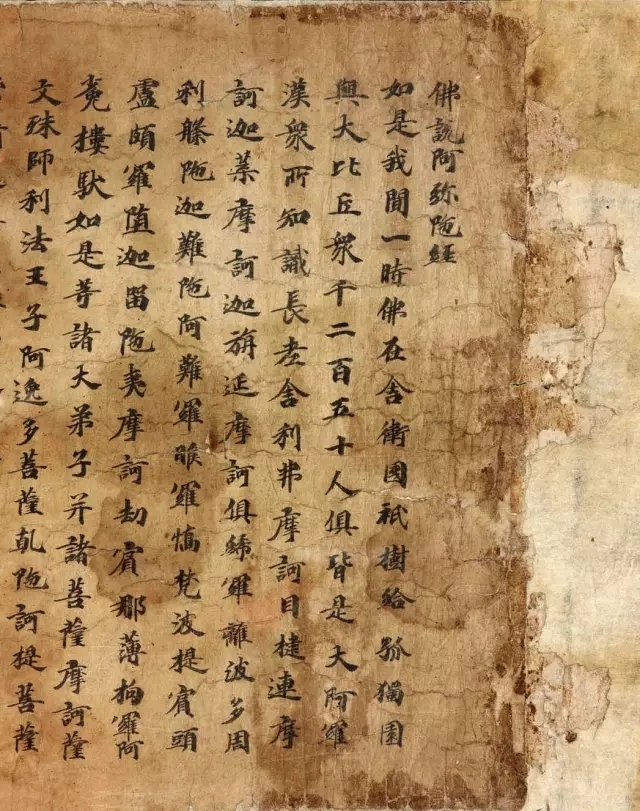 佛說阿弥陁經
如是我聞一時佛在舍衛國祇樹給孤獨園
與大比丘衆千二百五十人俱皆是大阿羅
漢衆所知識長老舍利弗摩訶目揵連摩
訶迦葉摩訶迦旃延摩訶俱絺羅離波多周
利槃陁迦難陁阿難羅睺羅憍梵波提賓頭
盧頗羅堕迦留陁夷摩訶劫賓那薄拘羅阿
㝹樓馱如是等諸大弟子并諸菩薩摩訶薩
文殊師利法王子阿逸多菩薩乹陁訶提菩薩